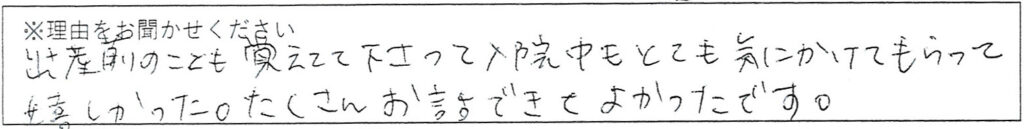 ※理由をお聞かせください
出産前のことも覚えてて下さって入院中もとても気にかけてもらって
嬉しかった。たくさんお話できてよかったです。